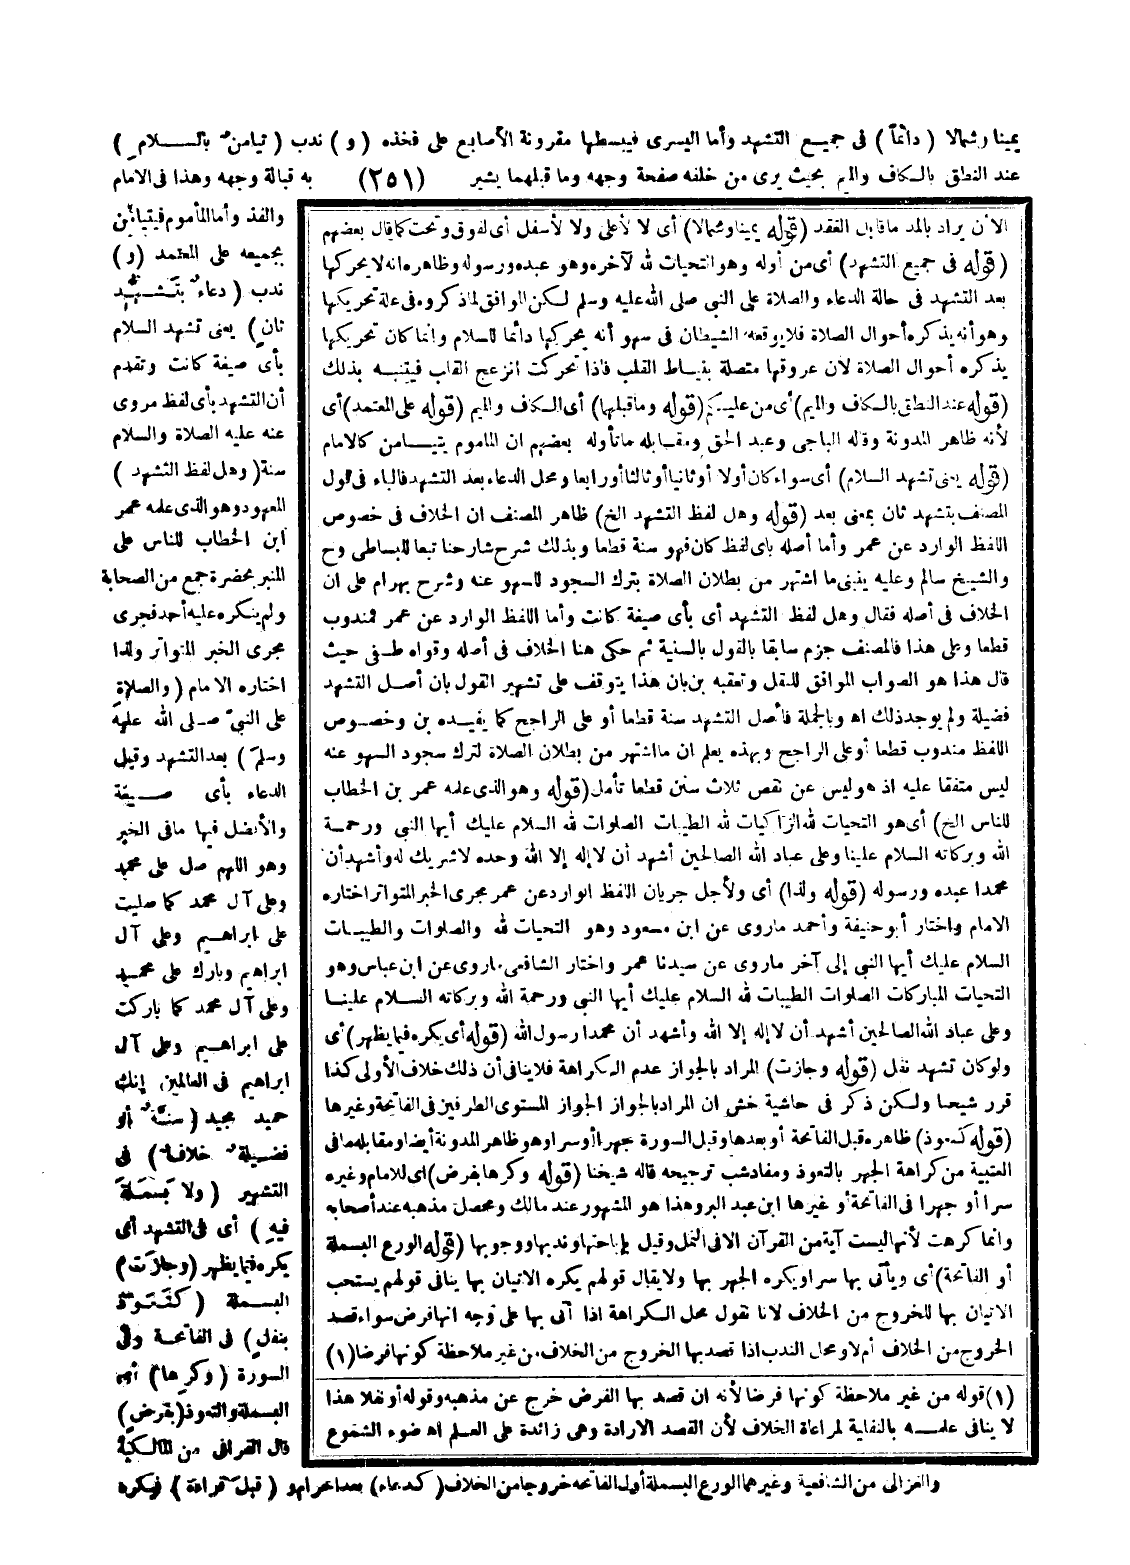 يمينا وشمالا (دائما) فى جميع التشهد وأما اليسرى فيبسطها مقرونة الأصابع على فخذه (و) ندب (تيامن بالسلام)
عند النطق بالكاف والميم بحيث يرى من خلفه صفحة وجهه وما قبلهما يشير (٢٥١) به قبالة وجهه وهذا فى الامام
والفذ وأما المأموم فيتيامن
بجميعه على المعتمد (و)
ندب (دعاء بتشهد
ثان) يعنى تشهد السلام
بأى صيغة كانت وتقدم
أن التشهد بأى لفظ مروى
عنه عليه الصلاة والسلام
سنة (وهل لفظ التشهد)
المعهود وهو الذى علمه عمر
ابن الخطاب للناس على
المنبر بحضرة جمع من الصحابة
ولم ينكره عليه أحد فجرى
مجرى الخبر المتواتر ولذا
اختاره الامام (والصلاة
على النبى صلى الله عليه
وسلم) بعد التشهد وقبل
الدعاء بأى صيغة
والأفضل فيها ما فى الخبر
وهو اللهم صل على محمد
وعلى آل محمد كما صليت
على ابراهيم وعلى آل
ابراهيم وبارك على محمد
وعلى آل محمد كما باركت
على ابراهيم وعلى آل
ابراهيم فى العالمين إنك
حميد مجيد (سنة أو
فضيلة خلاف) فى
التشهير (ولا بسملة
فيه) أى فى التشهد أى
يكره فيما يظهر (وجازت)
البسملة (كتعوذ
بنفل) فى الفاتحة وفى
السورة (وكرها) أى
البسملة والتعوذ (بفرض)
قال القرافى من المالكية
والغزالى من الشافعية وغيرهما الورع البسملة أول الفاتحة خروجا من الخلاف (كدعاء) بعد احرام و (قبل قراءة) فيكره
الا أن يراد بالمد ما قابل العقد (قوله يمينا وشمالا) أى لا لأعلى ولا لأسفل أى لفوق وتحت كما قال بعضهم
(قوله فى جميع التشهد) أى من أوله وهو التحيات لله لآخره وهو عبده ورسوله وظاهره انه لا يحركها
بعد التشهد فى حالة الدعاء والصلاة على النبي صلى الله عليه وسلم لكن الموافق لما ذكروه فى علة تحريكها
وهو أنه يذكره أحوال الصلاة فلا يوقعه الشيطان فى سهو أنه يحركها دائما للسلام وانما كان تحريكها
يذكره أحوال الصلاة لأن عروقها متصلة بنياط القلب فاذا تحركت انزعج القلب فيتنبه بذلك
(قوله عند النطق بالكاف والميم) أى من عليكم (قوله وما قبلها) أى الكاف والميم (قوله على المعتمد) أى
لأنه ظاهر المدونة وقاله الباجى وعبد الحق ومقابله ما تأوله بعضهم ان الماموم يتيامن كالامام
(قوله يعنى تشهد السلام) أى سواء كان أولا أو ثانيا أو ثالثا أو رابعا ومحل الدعاء بعد التشهد فالباء فى قول
المصنف بتشهد ثان بمعنى بعد (قوله وهل لفظ التشهد الخ) ظاهر المصنف ان الخلاف فى خصوص
اللفظ الوارد عن عمر وأما أصله باى لفظ كان فهو سنة قطعا وبذلك شرح شارحنا تبعا للبساطى وح
والشيخ سالم وعليه ينبنى ما اشتهر من بطلان الصلاة بترك السجود للسهو عنه وشرح بهرام على ان
الخلاف فى أصله فقال وهل لفظ التشهد أى بأى صيغة كانت وأما اللفظ الوارد عن عمر فمندوب
قطعا وعلى هذا فالمصنف جزم سابقا بالقول بالسنية ثم حكى هنا الخلاف فى أصله وقواه طفى حيث
قال هذا هو الصواب الموافق للنقل وتعقبه بن بان هذا يتوقف على تشهير القول بان أصل التشهد
فضيلة ولم يوجد ذلك اه وبالجملة فأصل التشهد سنة قطعا أو على الراجح كما يفيده بن وخصوص
اللفظ مندوب قطعا أو على الراجح وبهذه يعلم ان ما اشتهر من بطلان الصلاة لترك سجود السهو عنه
ليس متفقا عليه اذ هو ليس عن نقص ثلاث سنن قطعا تأمل (قوله وهو الذى علمه عمر بن الخطاب
للناس الخ) أى هو التحيات لله الزاكيات لله الطيبات الصلوات لله السلام عليك أيها النبي ورحمة
الله وبركاته السلام علينا وعلى عباد الله الصالحين أشهد أن لا إله إلا الله وحده لا شريك له وأشهد أن
محمدا عبده ورسوله (قوله ولذا) أى ولأجل جريان اللفظ الوارد عن عمر مجرى الخبر المتواتر اختاره
الامام واختار أبو حنيفة وأحمد ماروى عن ابن مسعود وهو التحيات لله والصلوات والطيبات
السلام عليك أيها النبي إلى آخر ماروى عن سيدنا عمر واختار الشافعى ماروى عن ابن عباس وهو
التحيات المباركات الصلوات الطيبات لله السلام عليك أيها النبي ورحمة الله وبركاته السلام علينا
وعلى عباد الله الصالحين أشهد أن لا إله إلا الله وأشهد أن محمدا رسول الله (قوله أى يكره فيما يظهر) أى
ولو كان تشهد نفل (قوله وجازت) المراد بالجواز عدم الكراهة فلا ينافى أن ذلك خلاف الأولى كذا
قرر شيخنا ولكن ذكر فى حاشية خش ان المراد بالجواز الجواز المستوى الطرفين فى الفاتحة وغيرها
(قوله كتعوذ) ظاهره قبل الفاتحة أو بعدها وقبل السورة جهرا أو سرا وهو ظاهر المدونة أيضا ومقابله ما فى
العتبية من كراهة الجهر بالتعوذ ومفاد شب ترجيحه قاله شيخنا (قوله وكرها بفرض) اى للامام وغيره
سرا أو جهرا فى الفاتحة أو غيرها ابن عبد البر وهذا هو المشهور عند مالك ومحصل مذهبه عند أصحابه
وانما كرهت لأنها ليست آية من القرآن الا فى النمل وقيل باباحتها وندبها ووجوبها (قوله الورع البسملة
أو الفاتحة) أى ويأتى بها سرا ويكره الجهر بها ولا يقال قولهم يكره الاتيان بها ينافى قولهم يستحب
الاتيان بها للخروج من الخلاف لانا نقول محل الكراهة اذا أتى بها على وجه انها فرض سواء قصد
الخروج من الخلاف أم لا ومحل الندب اذا قصد بها الخروج من الخلاف من غير ملاحظة كونها فرضا (١)
(١) قوله من غير ملاحظة كونها فرضا لأنه ان قصد بها الفرض خرج عن مذهبه وقوله أو نفلا هذا
لا ينافى علمه بالنفلية لمراعاة الخلاف لأن القصد الارادة وهى زائدة على العلم اه ضوء الشموع